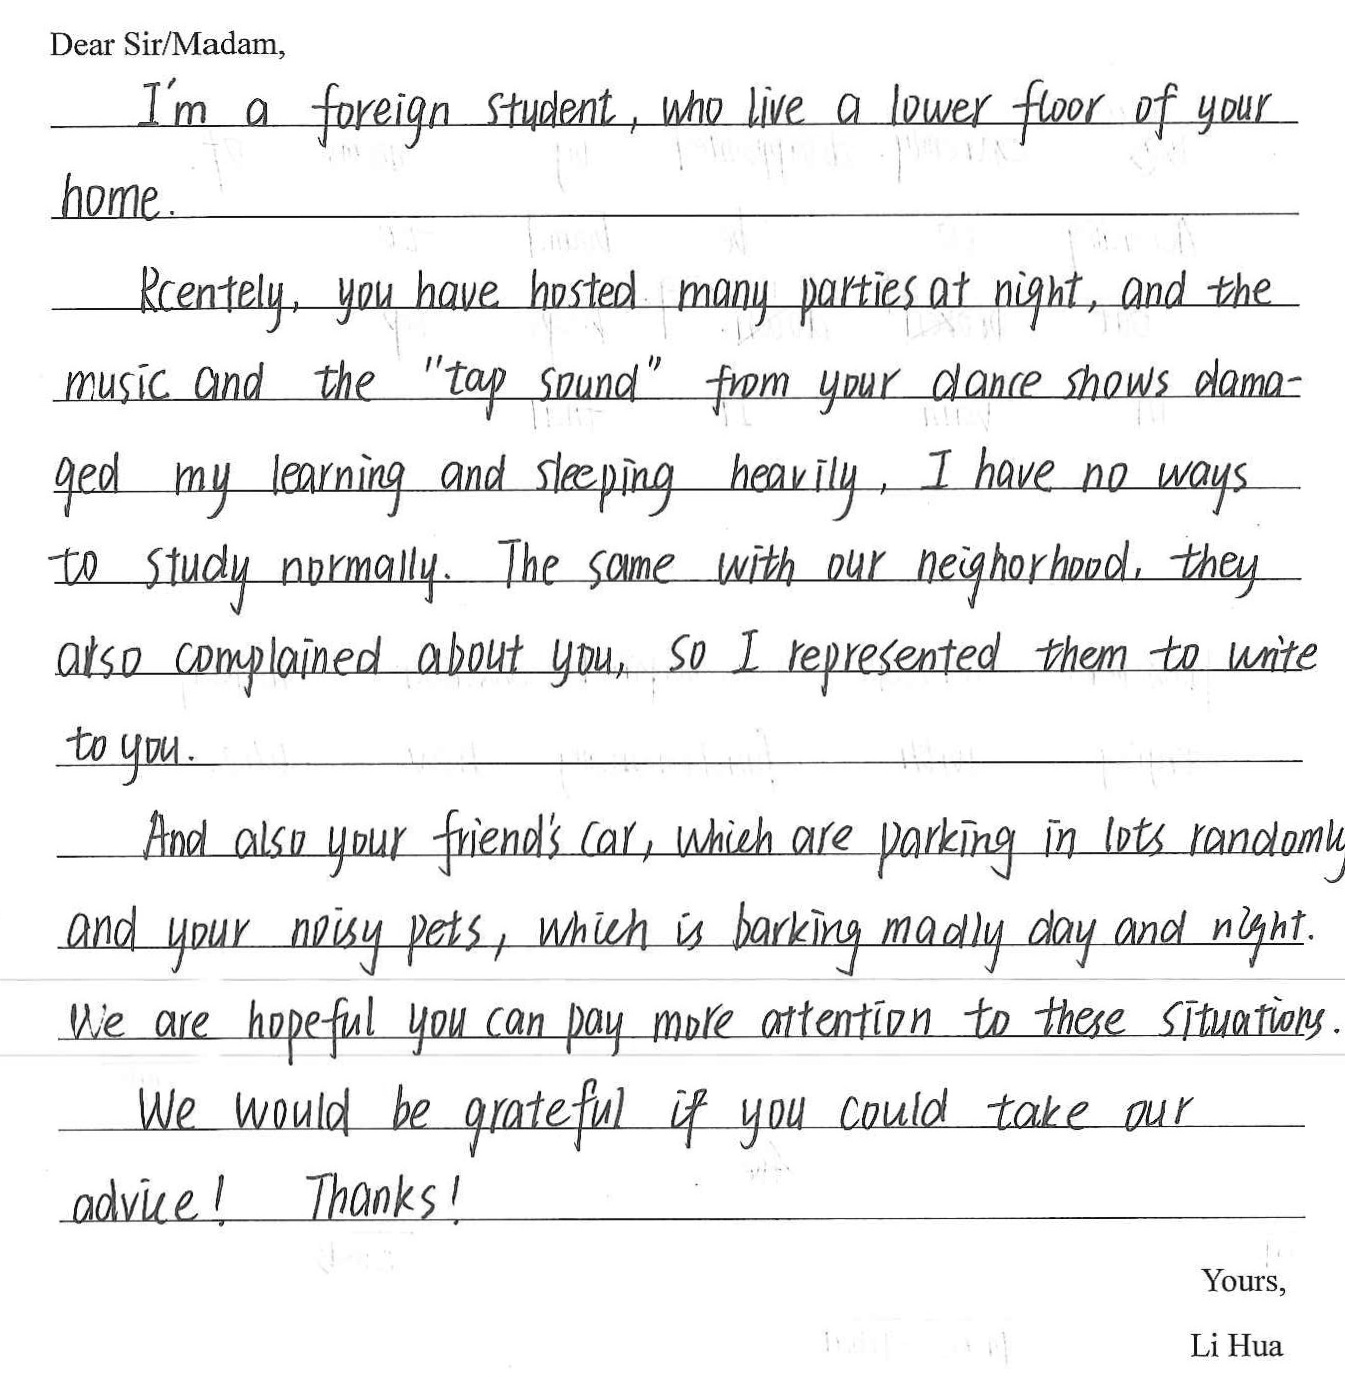 Dear Sir/Madam,
I'm a foreign student, who live a lower floor of your
home.
Rcentely, you have hosted many parties at night, and the
music and the "tap sound" from your dance shows dama-
ged my learning and sleeping heavily, I have no ways
to study normally. The same with our neighorhood, they
also complained about you, so I represented them to write
to you.
And also your friend's car, which are parking in lots randomly
and your noisy pets, which is barking madly day and night.
We are hopeful you can pay more attention to these situations.
We would be grateful if you could take our
advice! Thanks!
Yours,
Li Hua